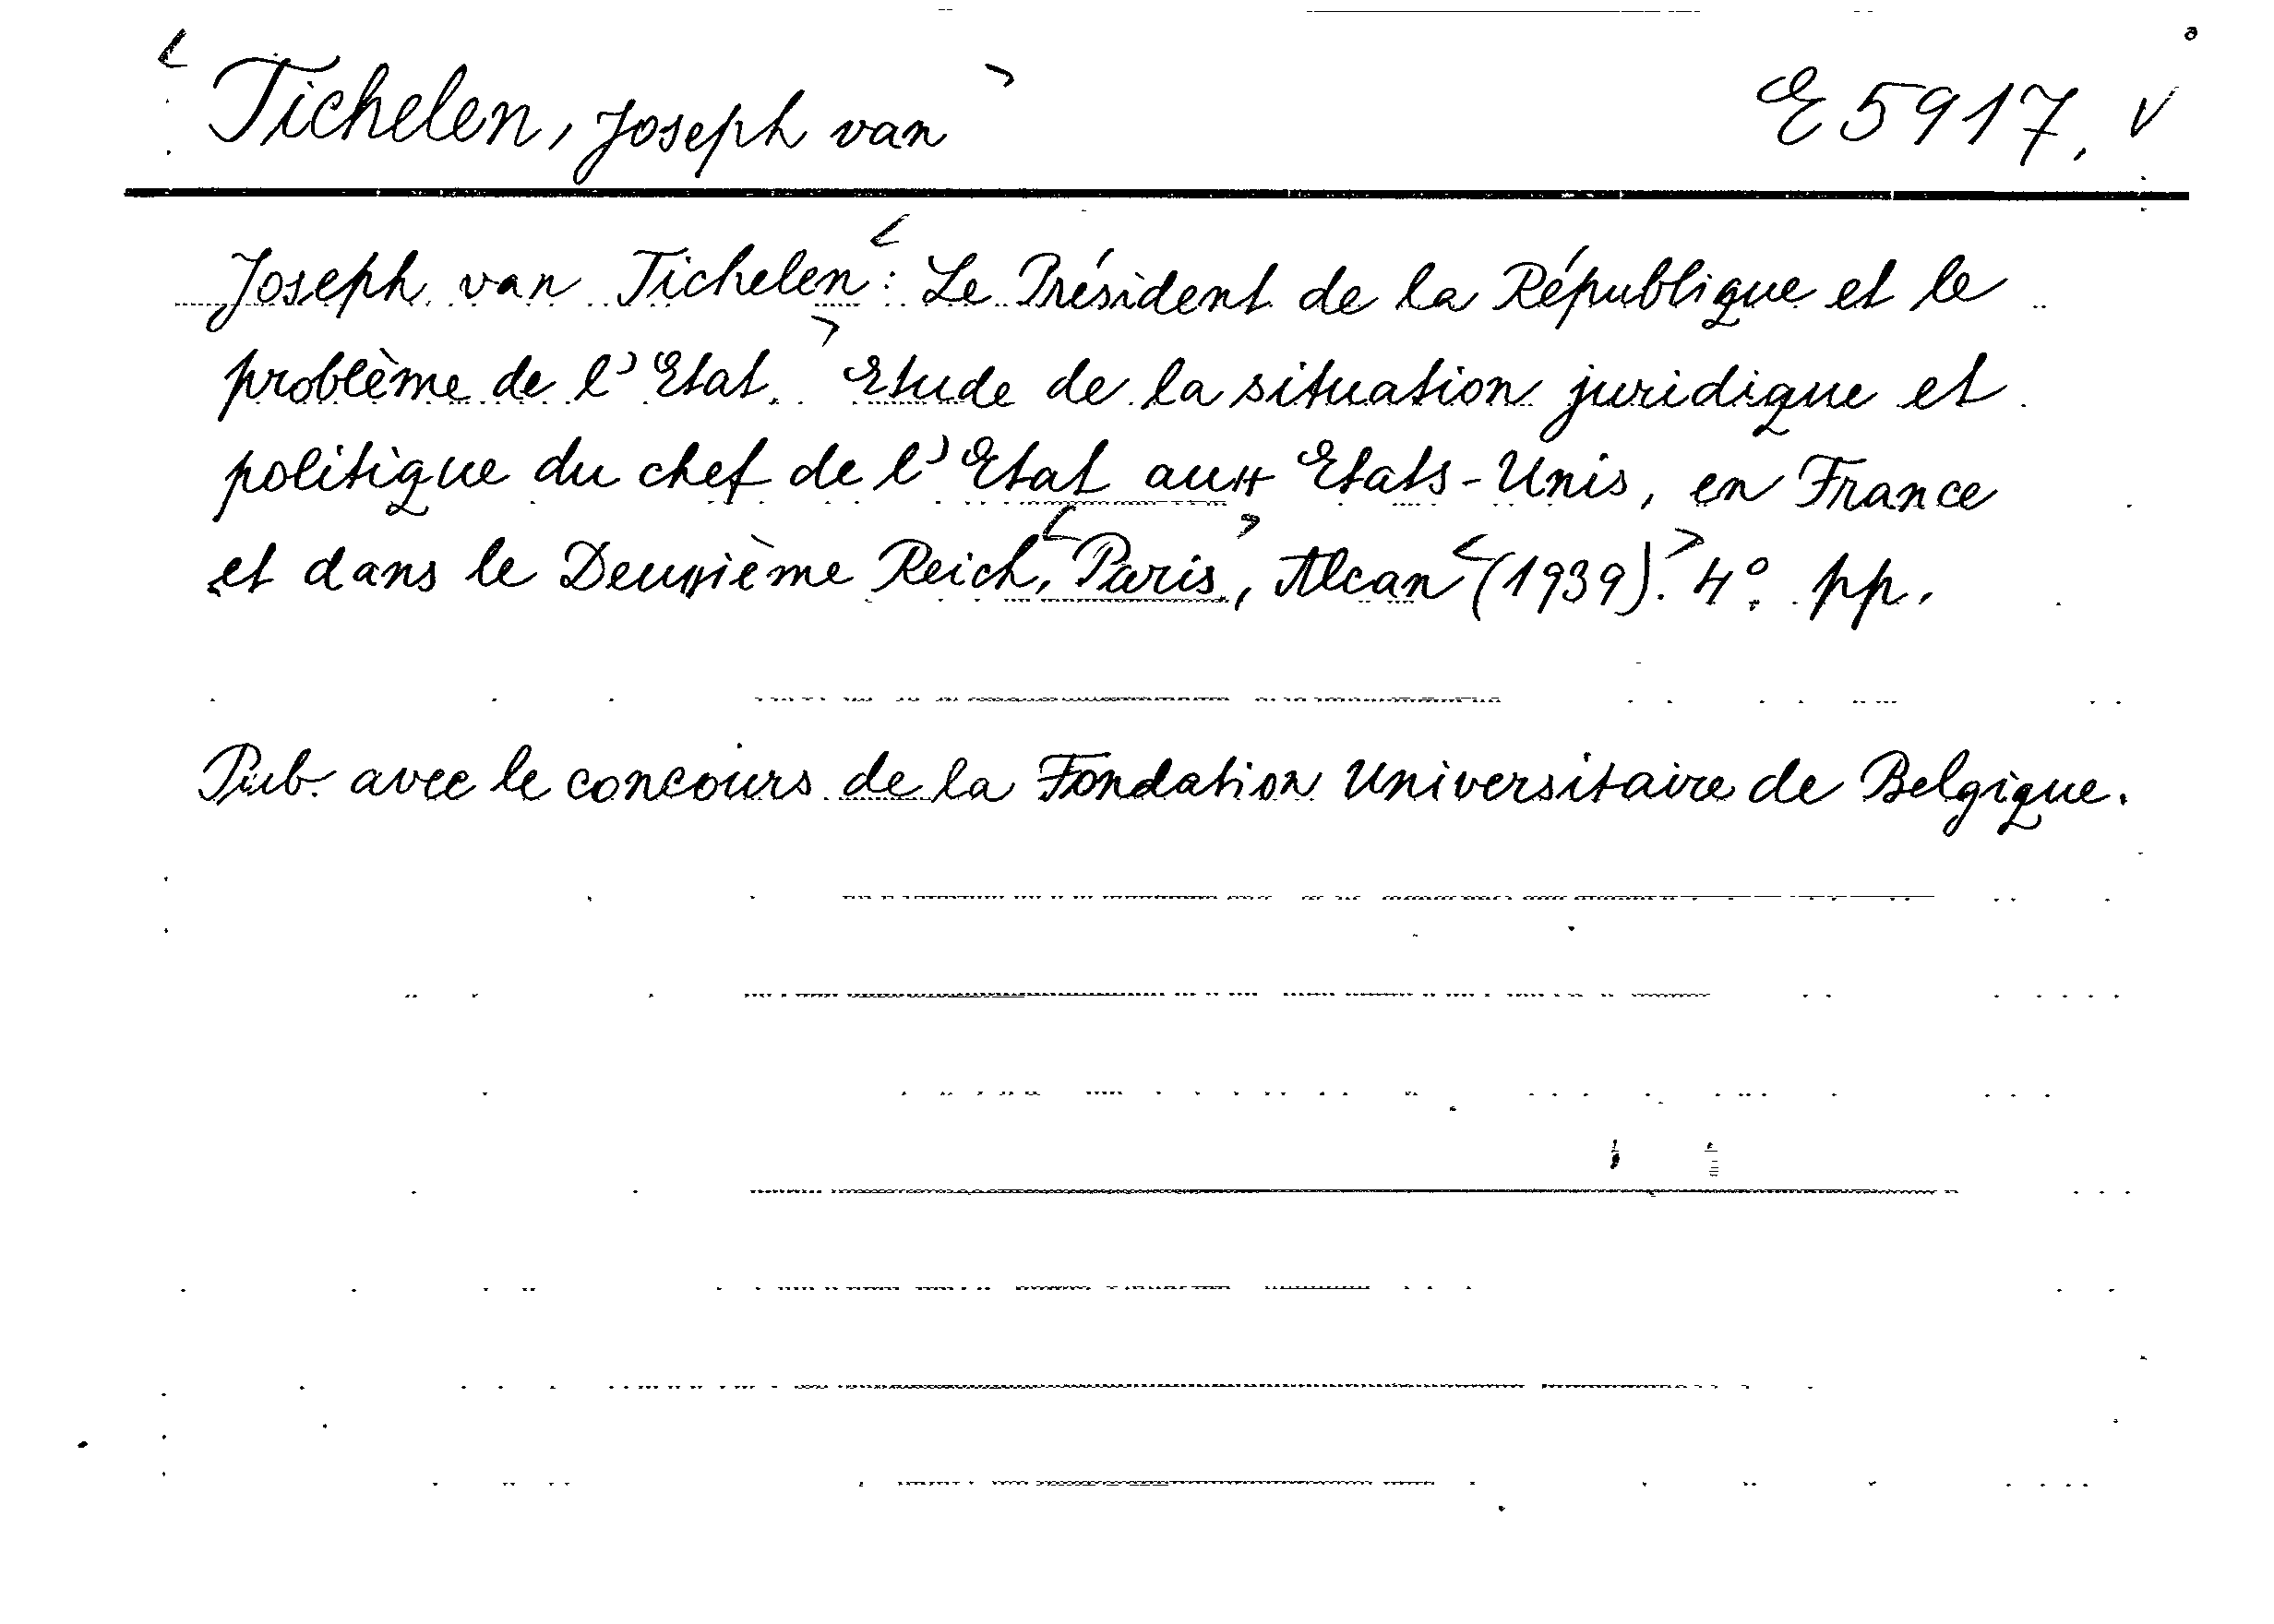 Tichelen, Joseph van E 5917. v
Joseph van Tichelen: Le Président de la République et le
problème de l'Etat. Etude de la situation juridique et
politique du chef de l'Etat aux Etats-Unis, en France
et dans le Deuxième Reich. Paris, Alcan (1939). 4° pp.
Pub. avec le concours de la Fondation Universitaire de Belgique.